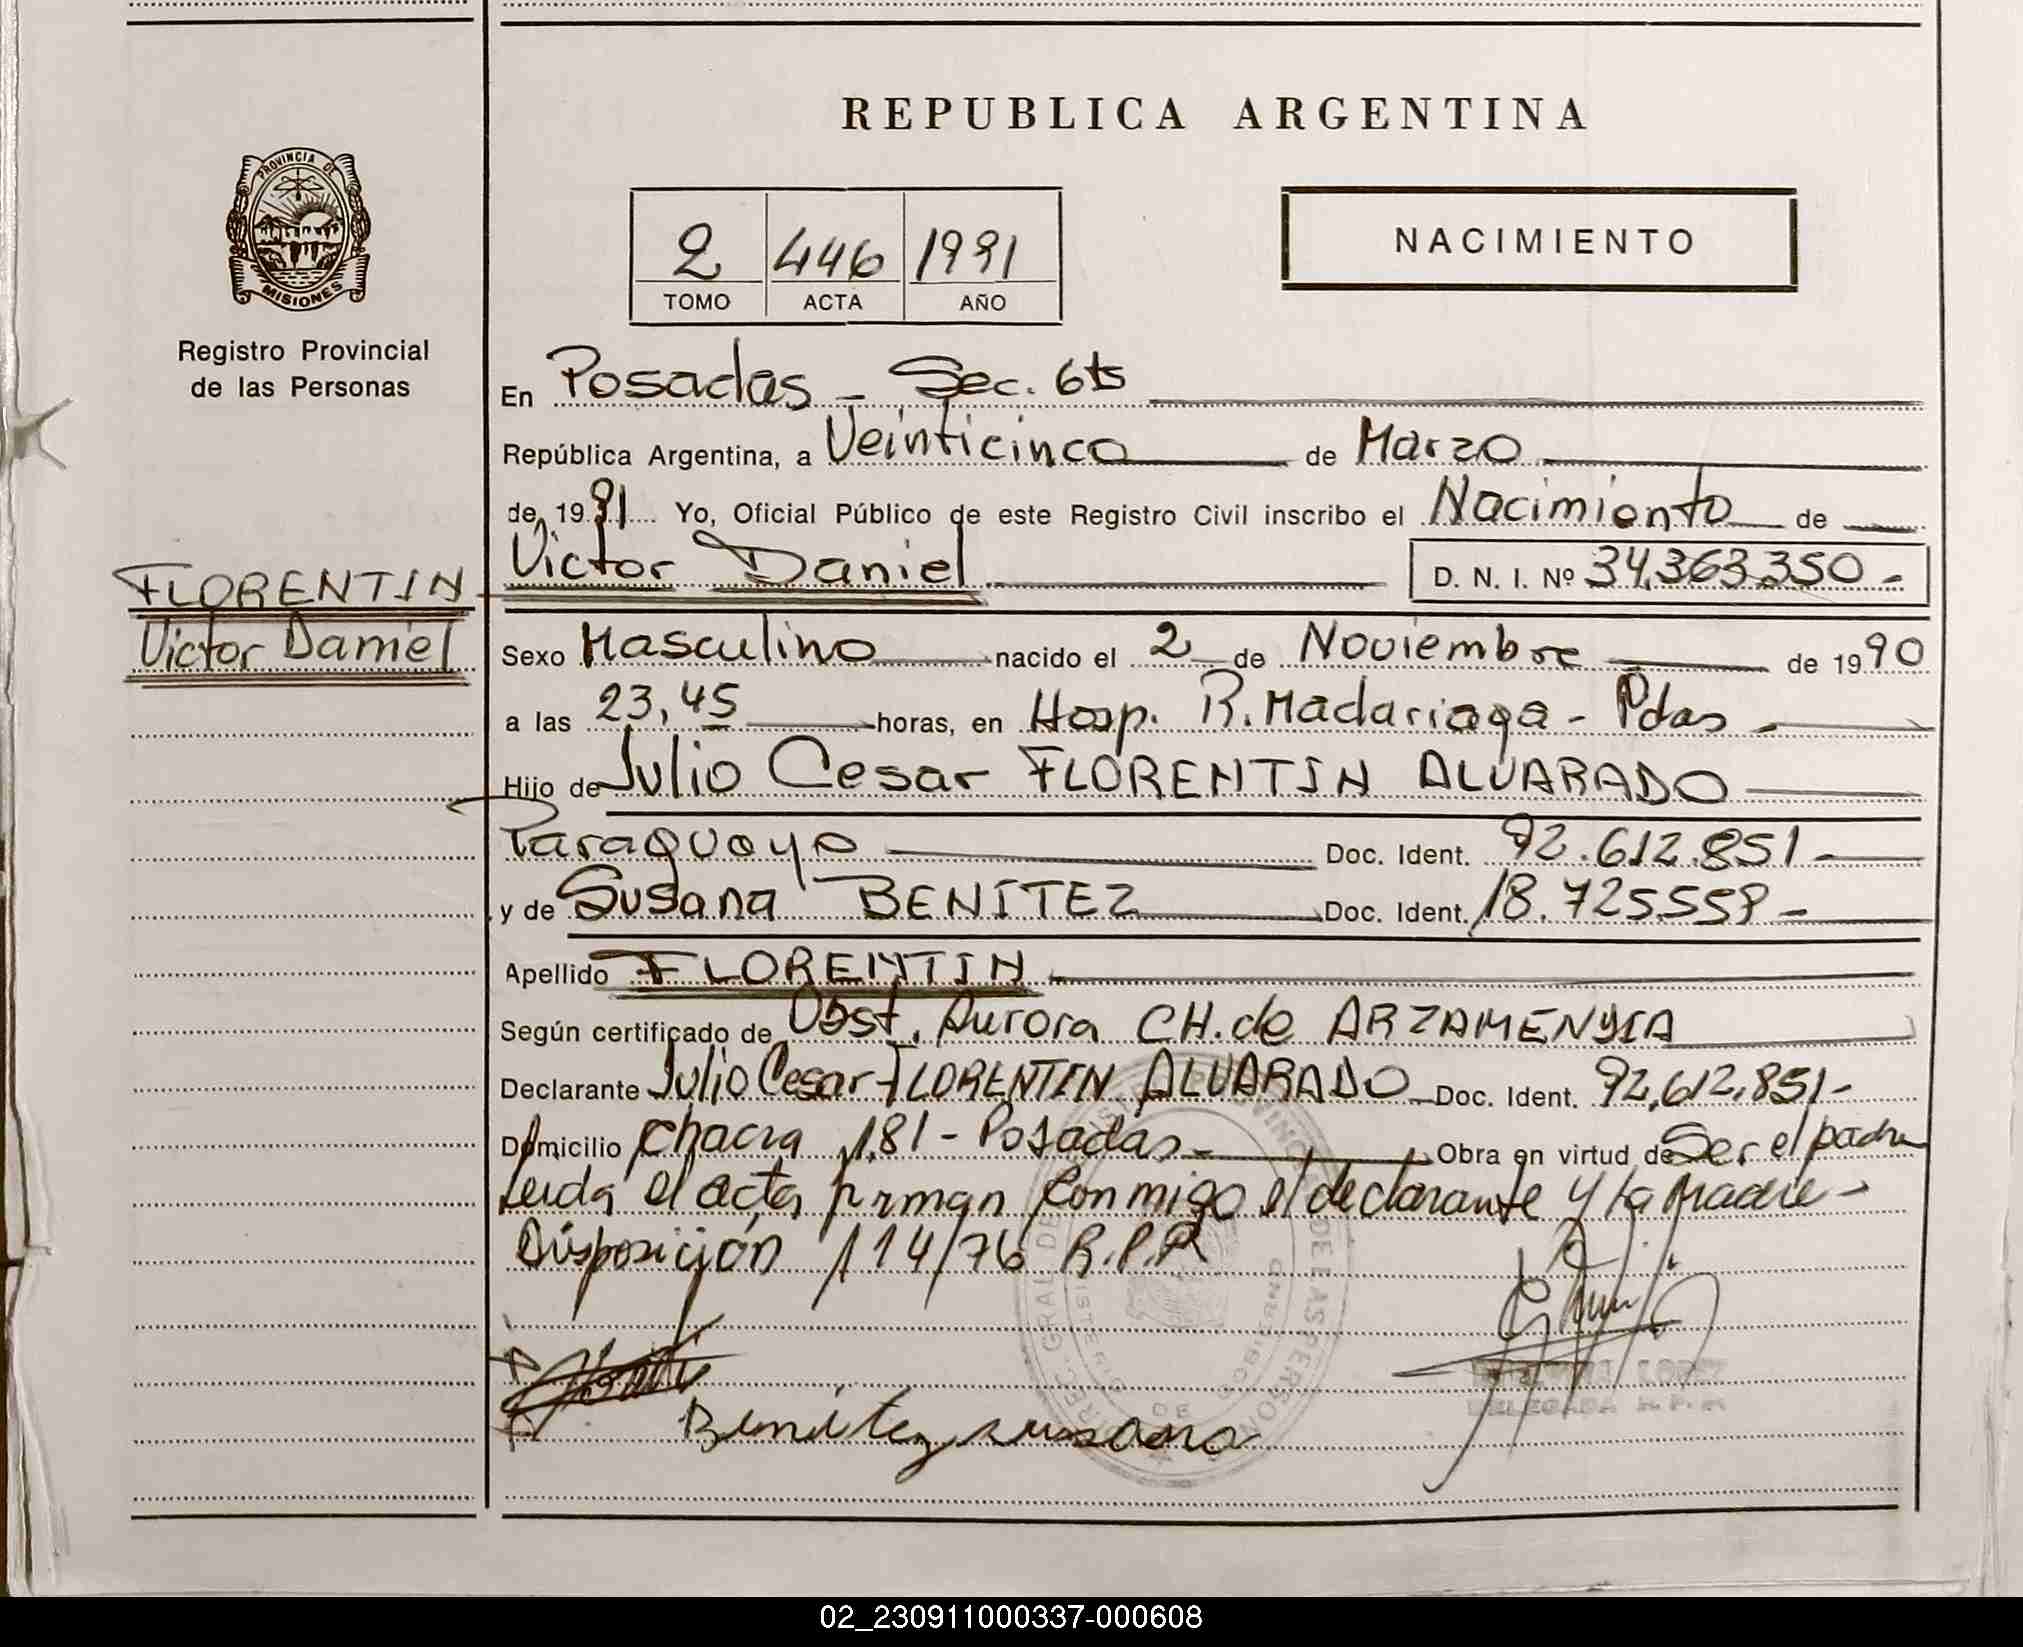 REPUBLICA ARGENTINA
PROVINCIA DE
MISIONES
Registro Provincial
de las Personas
2 446 1991
TOMO ACTA AÑO
NACIMIENTO
En Posadas - Sec. 6ta
República Argentina, a Veinticinco de Marzo
de 1991 Yo, Oficial Público de este Registro Civil inscribo el Nacimiento de
Victor Daniel D. N. I. Nº 34.363.350-
FLORENTIN
Victor Daniel
Sexo Masculino nacido el 2 de Noviembre de 1990
a las 23,45 horas, en Hosp. R. Madariaga - Pdas -
Hijo de Julio Cesar FLORENTIN ALVARADO
Paraguayo Doc. Ident. 92.612.851-
y de Susana BENITEZ Doc. Ident. 18.725.558-
Apellido FLORENTIN
Según certificado de Obst. Aurora CH. de ARZAMENDIA
Declarante Julio Cesar FLORENTIN ALVARADO Doc. Ident. 92.612.851-
Domicilio Chacra 181 - Posadas - Obra en virtud de Ser el padre
Leida el acta firman conmigo el declarante y la Madre -
Disposición 114/76 R.P.P.
Benitez susana
LOPEZ
DELEGADA R.P.P.
02_230911000337-000608